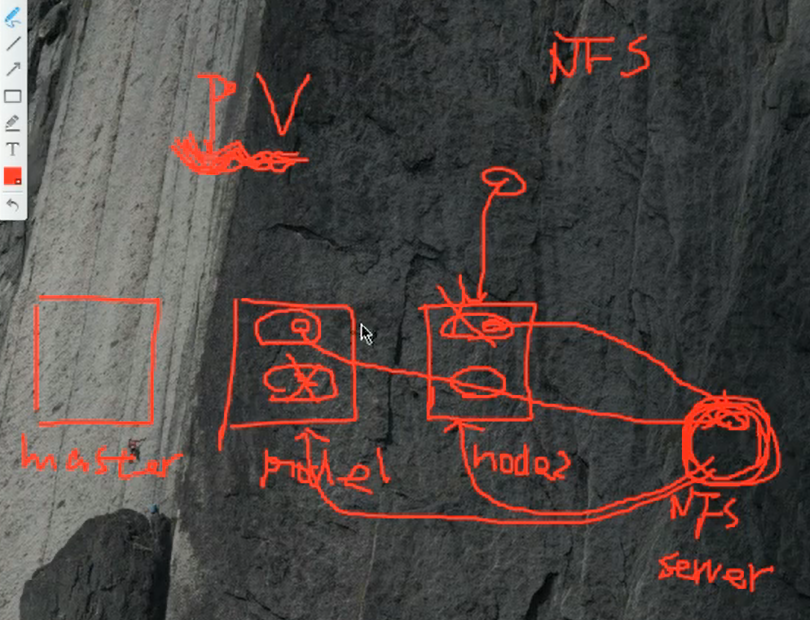 NFS
PV
T
master
node1
node2
NFS
server